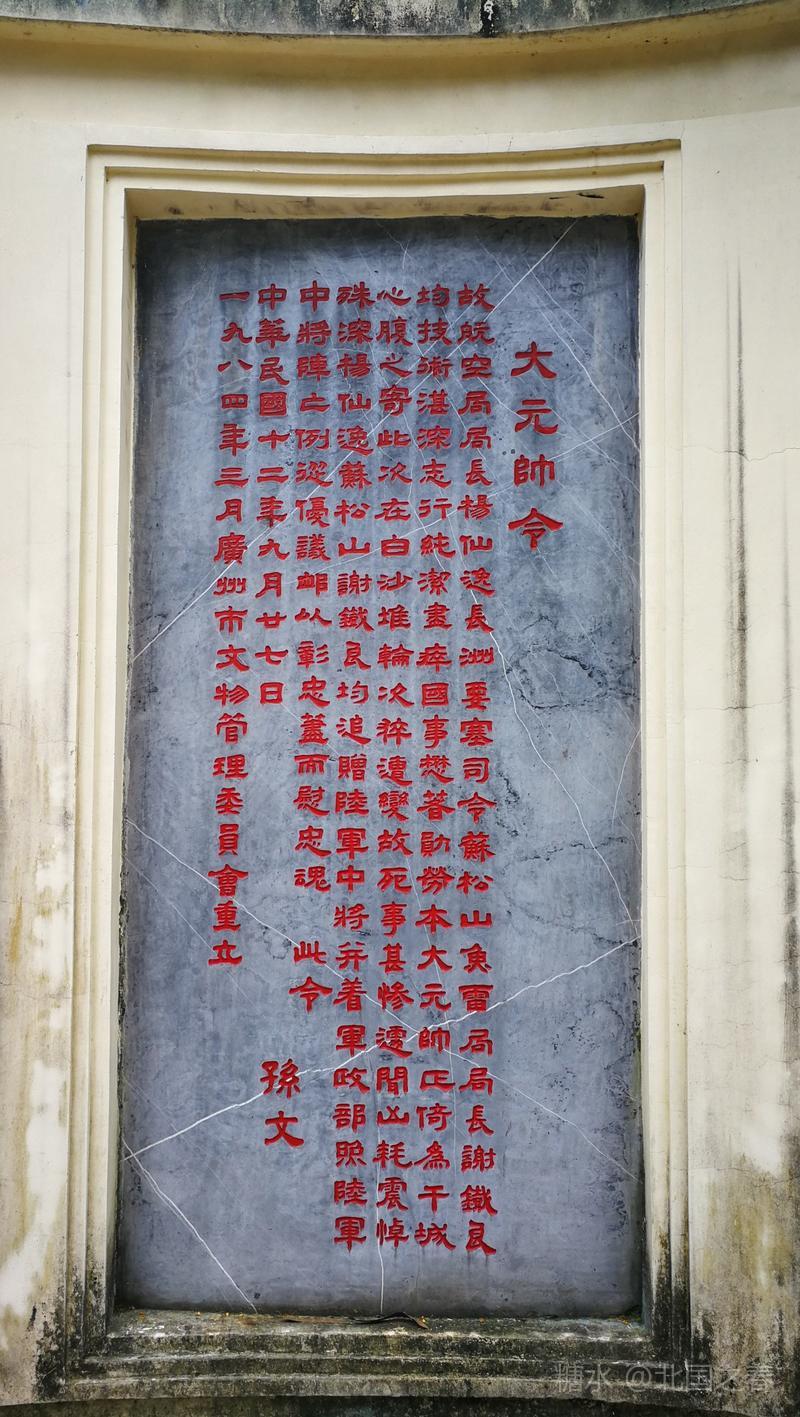 大元帥令
故航空局局長楊仙逸長洲要塞司令蘇松山魚雷局局長謝鐵良
均技術湛深志行純潔盡瘁國事懋著勛勞本大元帥正倚為干城
心腹之寄此次在白沙堆輪次猝遭變故死事甚慘遽聞凶耗震悼
殊深楊仙逸蘇松山謝鐵良均追贈陸軍中將并着軍政部照陸軍
中將陣亡例從優議卹以彰忠藎而慰忠魂 此令
孫文
中華民國十二年九月廿七日
一九八四年三月廣州市文物管理委員會重立
糖水 @北国之春